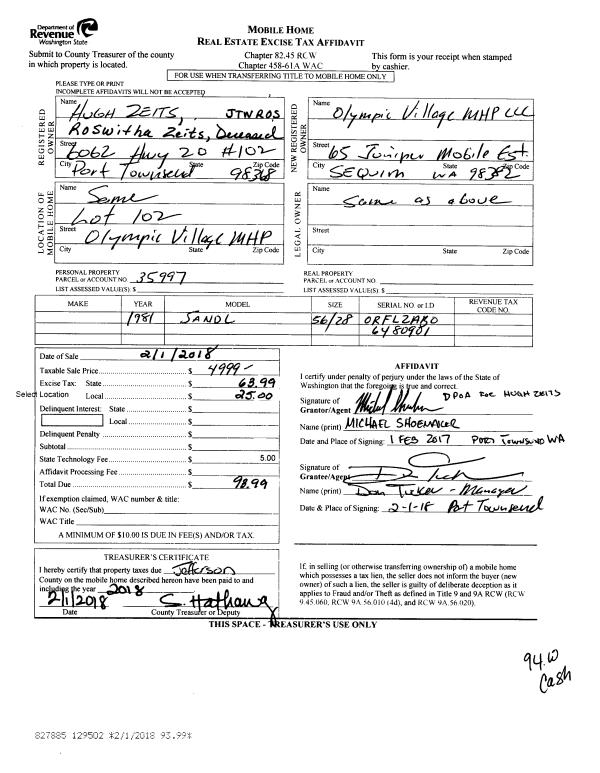 Department of
Revenue
Washington State
MOBILE HOME
REAL ESTATE EXCISE TAX AFFIDAVIT
Submit to County Treasurer of the county
in which property is located.
Chapter 82.45 RCW
Chapter 458-61A WAC
This form is your receipt when stamped
by cashier.
FOR USE WHEN TRANSFERRING TITLE TO MOBILE HOME ONLY
PLEASE TYPE OR PRINT
INCOMPLETE AFFIDAVITS WILL NOT BE ACCEPTED
REGISTERED OWNER
Name HUGH ZEITS, JTWROS
Roswitha Zeits, Deceased
Street 6062 Hwy 20 #102
City Port Townsend State Zip Code 98368
NEW REGISTERED OWNER
Name Olympic Village MHP LLC
Street 65 Juniper Mobile Est.
City SEQUIM State WA Zip Code 98382
LOCATION OF MOBILE HOME
Name Same
Lot 102
Street Olympic Village MHP
City State Zip Code
LEGAL OWNER
Name Same as above
Street
City State Zip Code
PERSONAL PROPERTY
PARCEL or ACCOUNT NO. 35997
LIST ASSESSED VALUE(S): $
REAL PROPERTY
PARCEL or ACCOUNT NO.
LIST ASSESSED VALUE(S): $
MAKE YEAR MODEL SIZE SERIAL NO. or I.D REVENUE TAX CODE NO.
1981 SANDL 56/28 ORFLZABO
6480901
Date of Sale 2/1/2018
Taxable Sale Price $ 4999-
Excise Tax: State $ 63.99
Select Location Local $ 25.00
Delinquent Interest: State $
Local $
Delinquent Penalty $
Subtotal $
State Technology Fee $ 5.00
Affidavit Processing Fee $
Total Due $ 93.99
If exemption claimed, WAC number & title:
WAC No. (Sec/Sub)
WAC Title
A MINIMUM OF $10.00 IS DUE IN FEE(S) AND/OR TAX.
AFFIDAVIT
I certify under penalty of perjury under the laws of the State of
Washington that the foregoing is true and correct.
Signature of
Grantor/Agent DPOA FOR HUGH ZEITS
Name (print) MICHAEL SHOEMAKER
Date and Place of Signing: 1 FEB 2017 PORT TOWNSEND WA
Signature of
Grantee/Agent
Name (print) Don Tucker - Manager
Date & Place of Signing: 2-1-18 Port Townsend
TREASURER'S CERTIFICATE
I hereby certify that property taxes due Jefferson
County on the mobile home described hereon have been paid to and
including the year 2018
2/1/2018
Date County Treasurer or Deputy
If, in selling (or otherwise transferring ownership of) a mobile home
which possesses a tax lien, the seller does not inform the buyer (new
owner) of such a lien, the seller is guilty of deliberate deception as it
applies to Fraud and/or Theft as defined in Title 9 and 9A RCW (RCW
9.45.060, RCW 9A.56.010 (4d), and RCW 9A.56.020).
THIS SPACE - TREASURER'S USE ONLY
Cash
827885 129502 *2/1/2018 93.99*